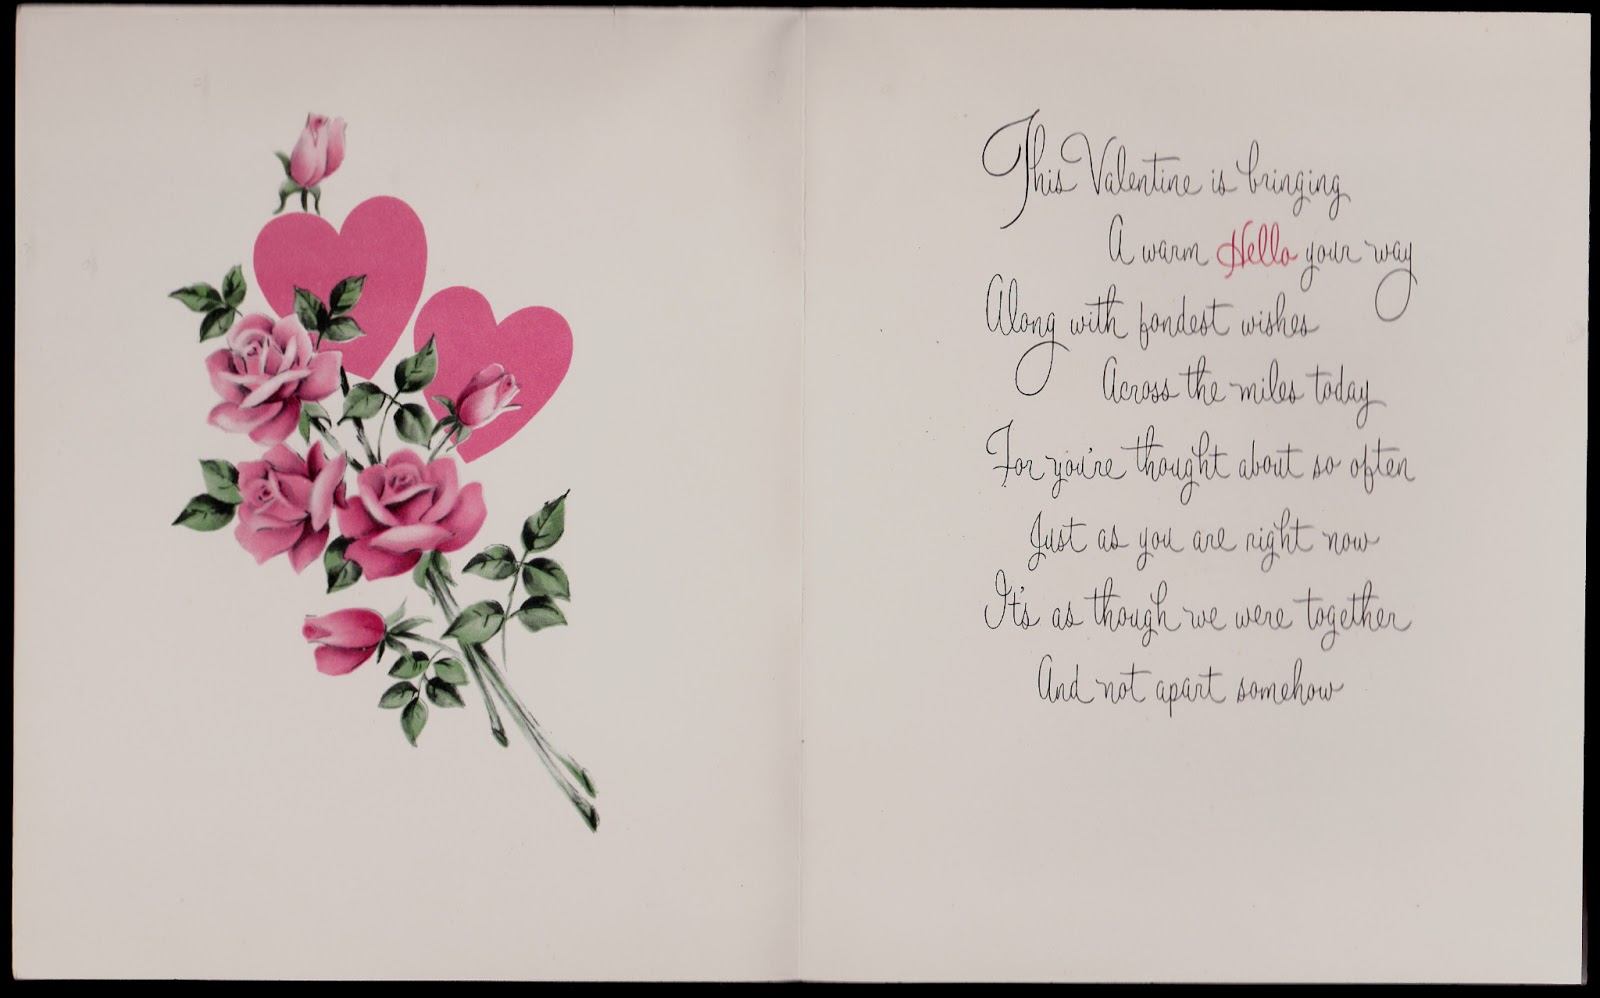 This Valentine is bringing
A warm Hello your way
Along with fondest wishes
Across the miles today
For you're thought about so often
Just as you are right now
It's as though we were together
And not apart somehow